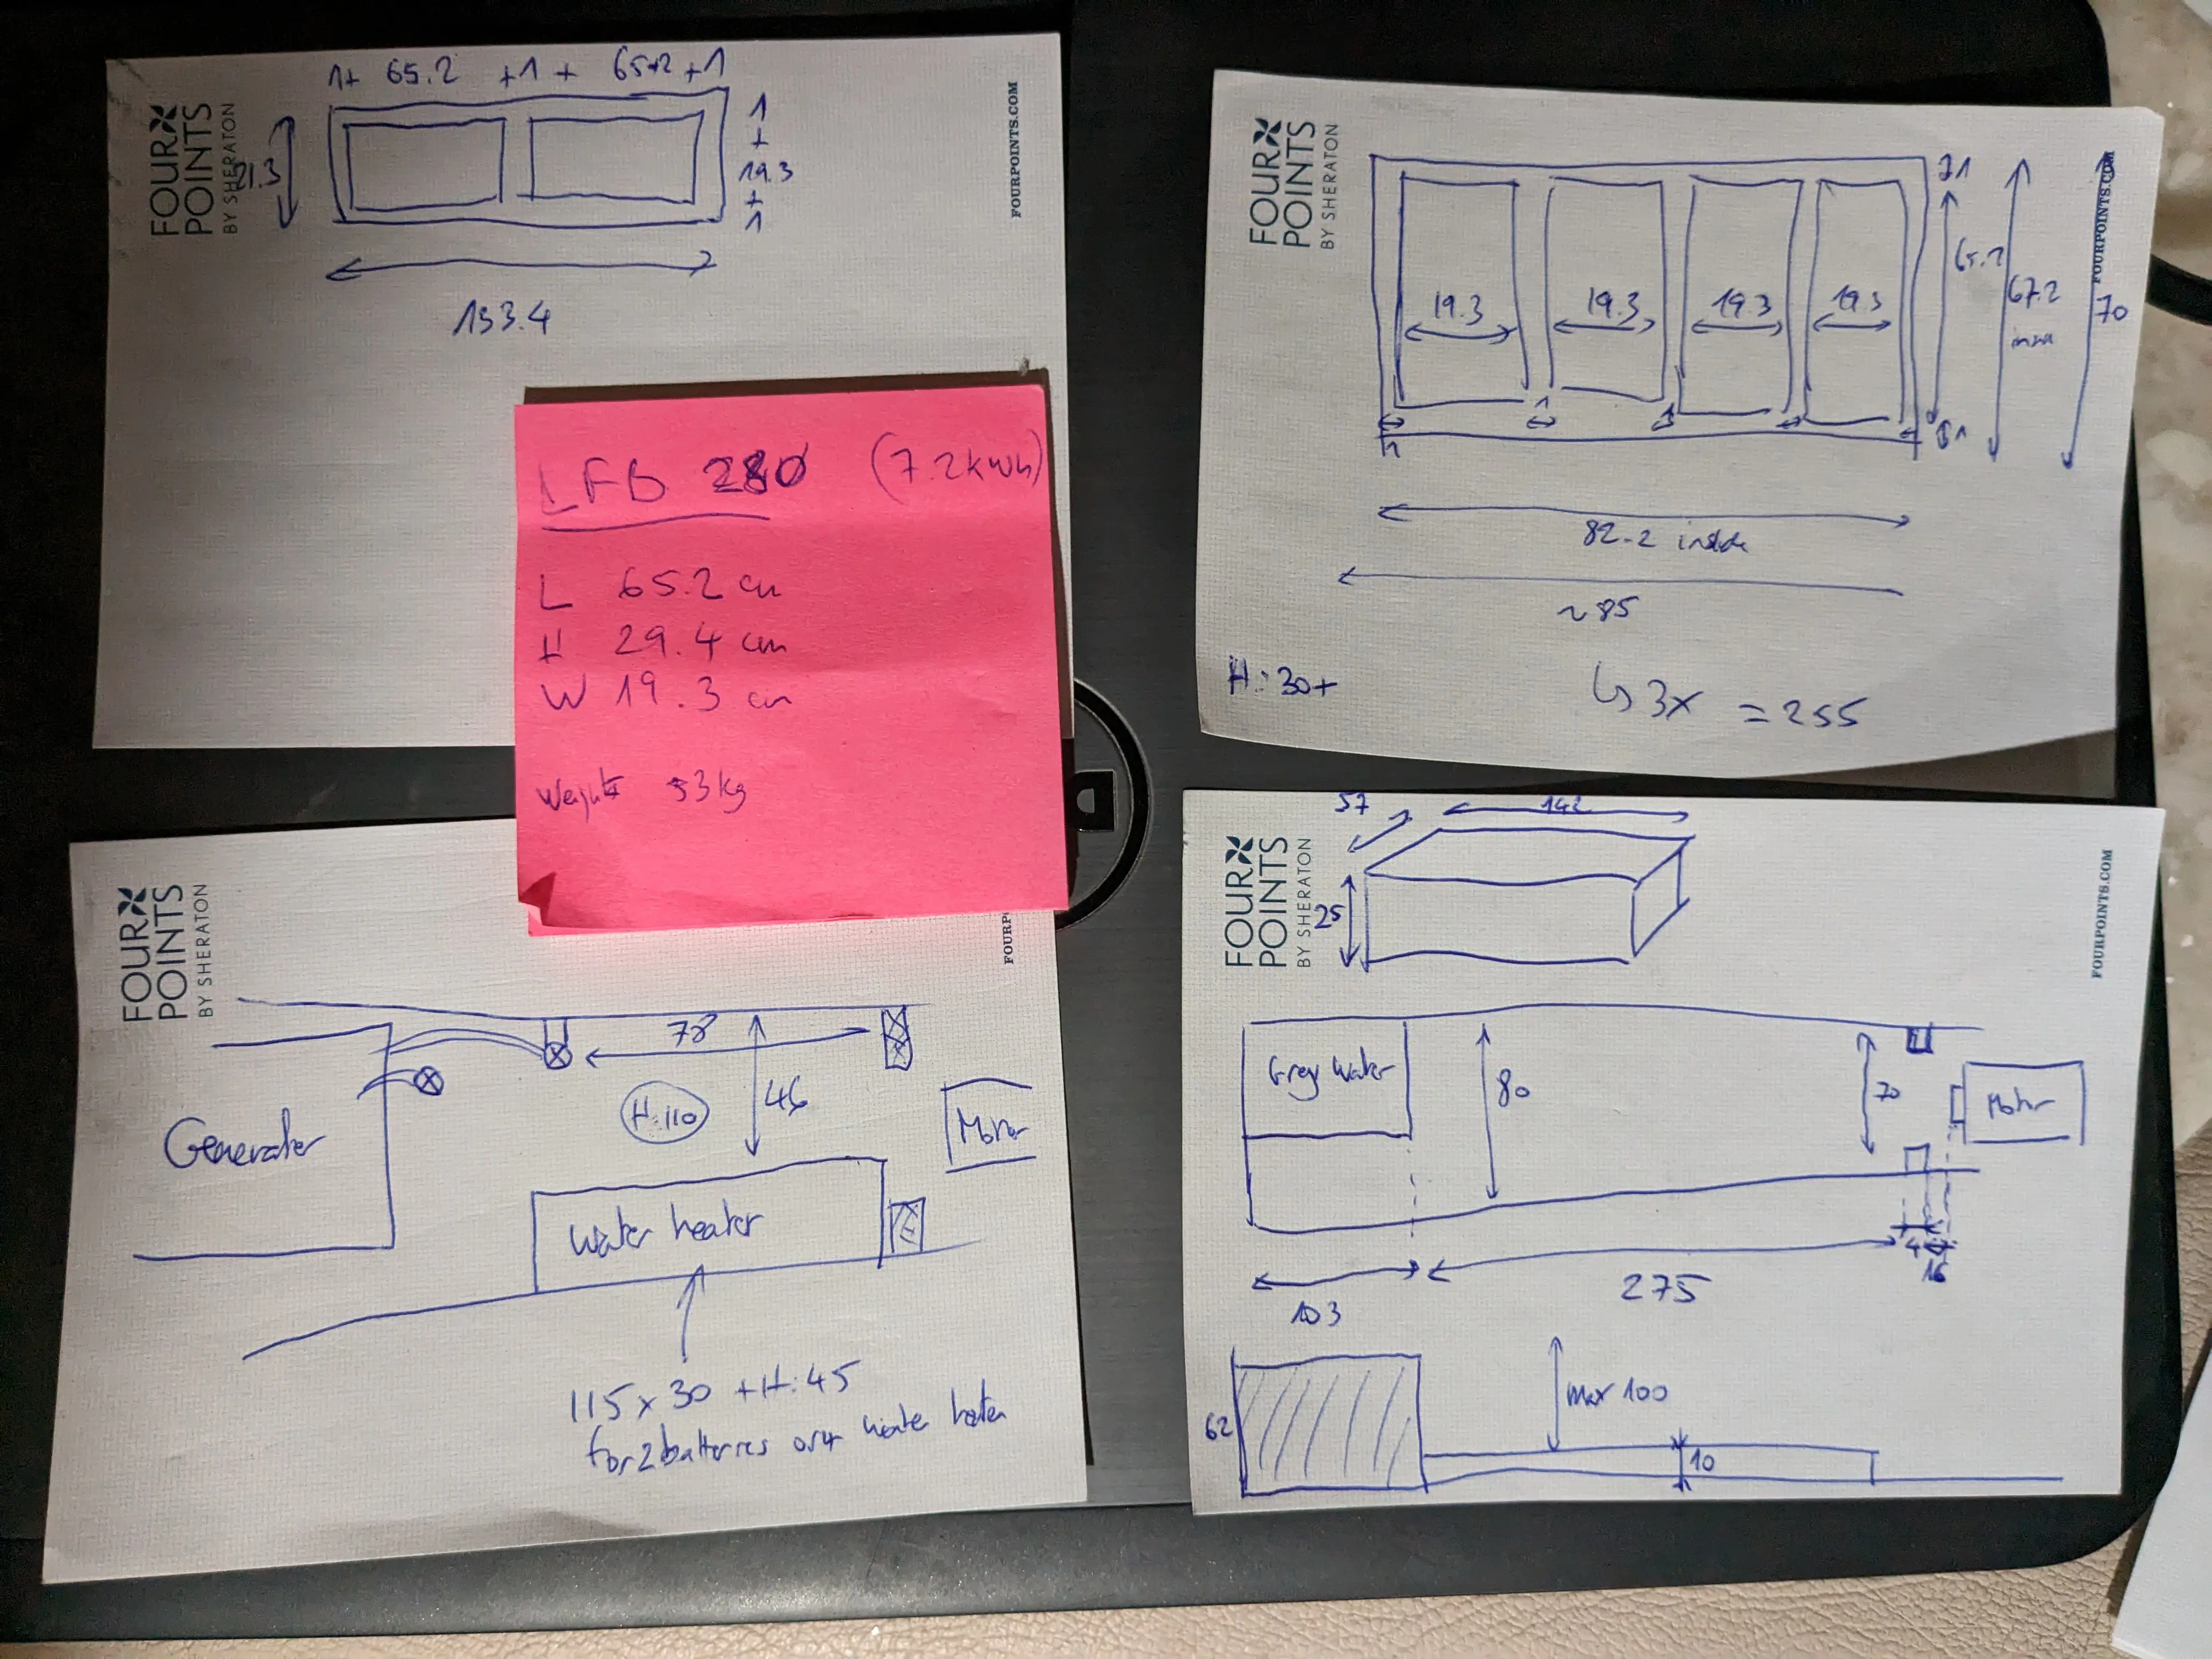 1+ 65.2 +1 + 65.2 +1
FOUR
POINTS
BY SHERATON
1
+
19.3
+
1
133.4
FOURPOINTS.COM
LFB 280 (7.2kWh)
L 65.2 cm
H 29.4 cm
W 19.3 cm
Weight 53kg
FOUR
POINTS
BY SHERATON
19.3
19.3
19.3
19.3
65.2
67.2
70
82.2 inside
~85
H: 30+
↳ 3x = 255
FOURPOINTS.COM
FOUR
POINTS
BY SHERATON
78
H:110
46
Generator
Motor
Water heater
115x30 + H:45
for 2 batteries or water heater
FOUR
POINTS
BY SHERATON
57
142
25
Grey Water
80
70
Motor
4
16
103
275
62
max 100
10
FOURPOINTS.COM